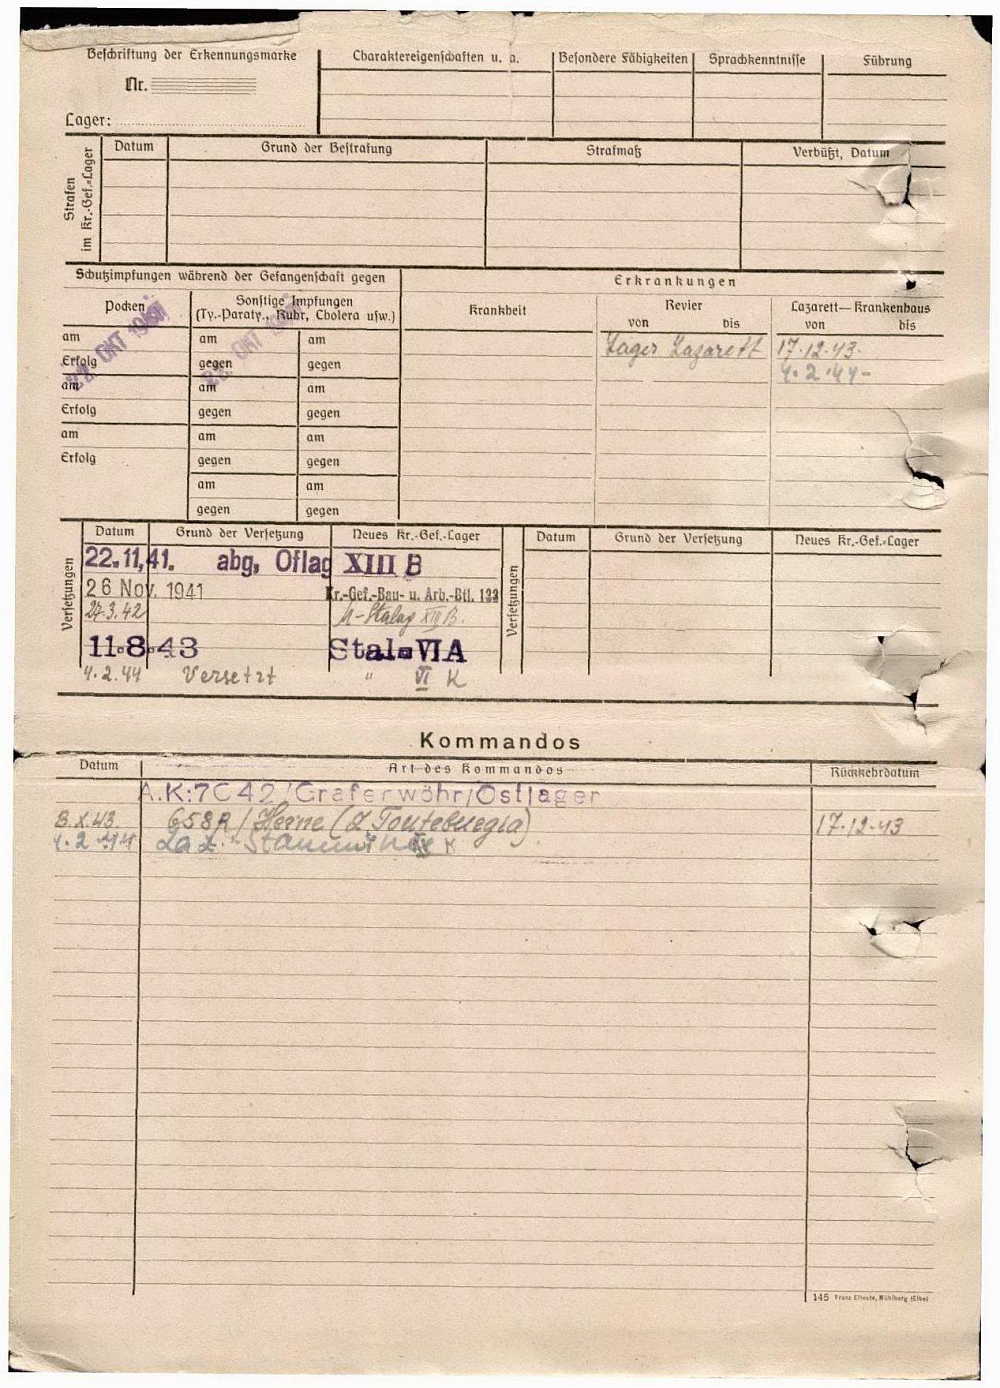 Beschriftung der Erkennungsmarke
Nr.
Lager:
Charaktereigenschaften u. a.
Besondere Fähigkeiten
Sprachkenntnisse
Führung
Strafen im Kr.-Gef.-Lager
Datum
Grund der Bestrafung
Strafmaß
Verbüßt, Datum
Schutzimpfungen während der Gefangenschaft gegen
Erkrankungen
Pocken
Sonstige Impfungen
(Ty.-Paraty., Ruhr, Cholera usw.)
Krankheit
Revier
von bis
Lazarett—Krankenhaus
von bis
OKT OKT
am am am
Lager Lazarett 17.12.43.
Erfolg gegen gegen
4.2.44-
am am
Erfolg gegen gegen
am am am
Erfolg gegen gegen
am am
gegen gegen
Versetzungen
Datum Grund der Versetzung Neues Kr.-Gef.-Lager
22.11.41. abg. Oflag XIII B
26 Nov. 1941 Kr.-Gef.-Bau- u. Arb.-Btl. 122
27.3.42 Stalag XIII B.
11.8.43 Stal. VI A
4.2.44 Versetzt " VI K
Versetzungen
Datum Grund der Versetzung Neues Kr.-Gef.-Lager
Kommandos
Datum Art des Kommandos Rückkehrdatum
A.K:7C42/Graferwöhr/Ostlager
8.X.43. 658R/Herne 17.12.43
4.2.44 Laz.
145 Franz Elteste, Mühlberg (Elbe)